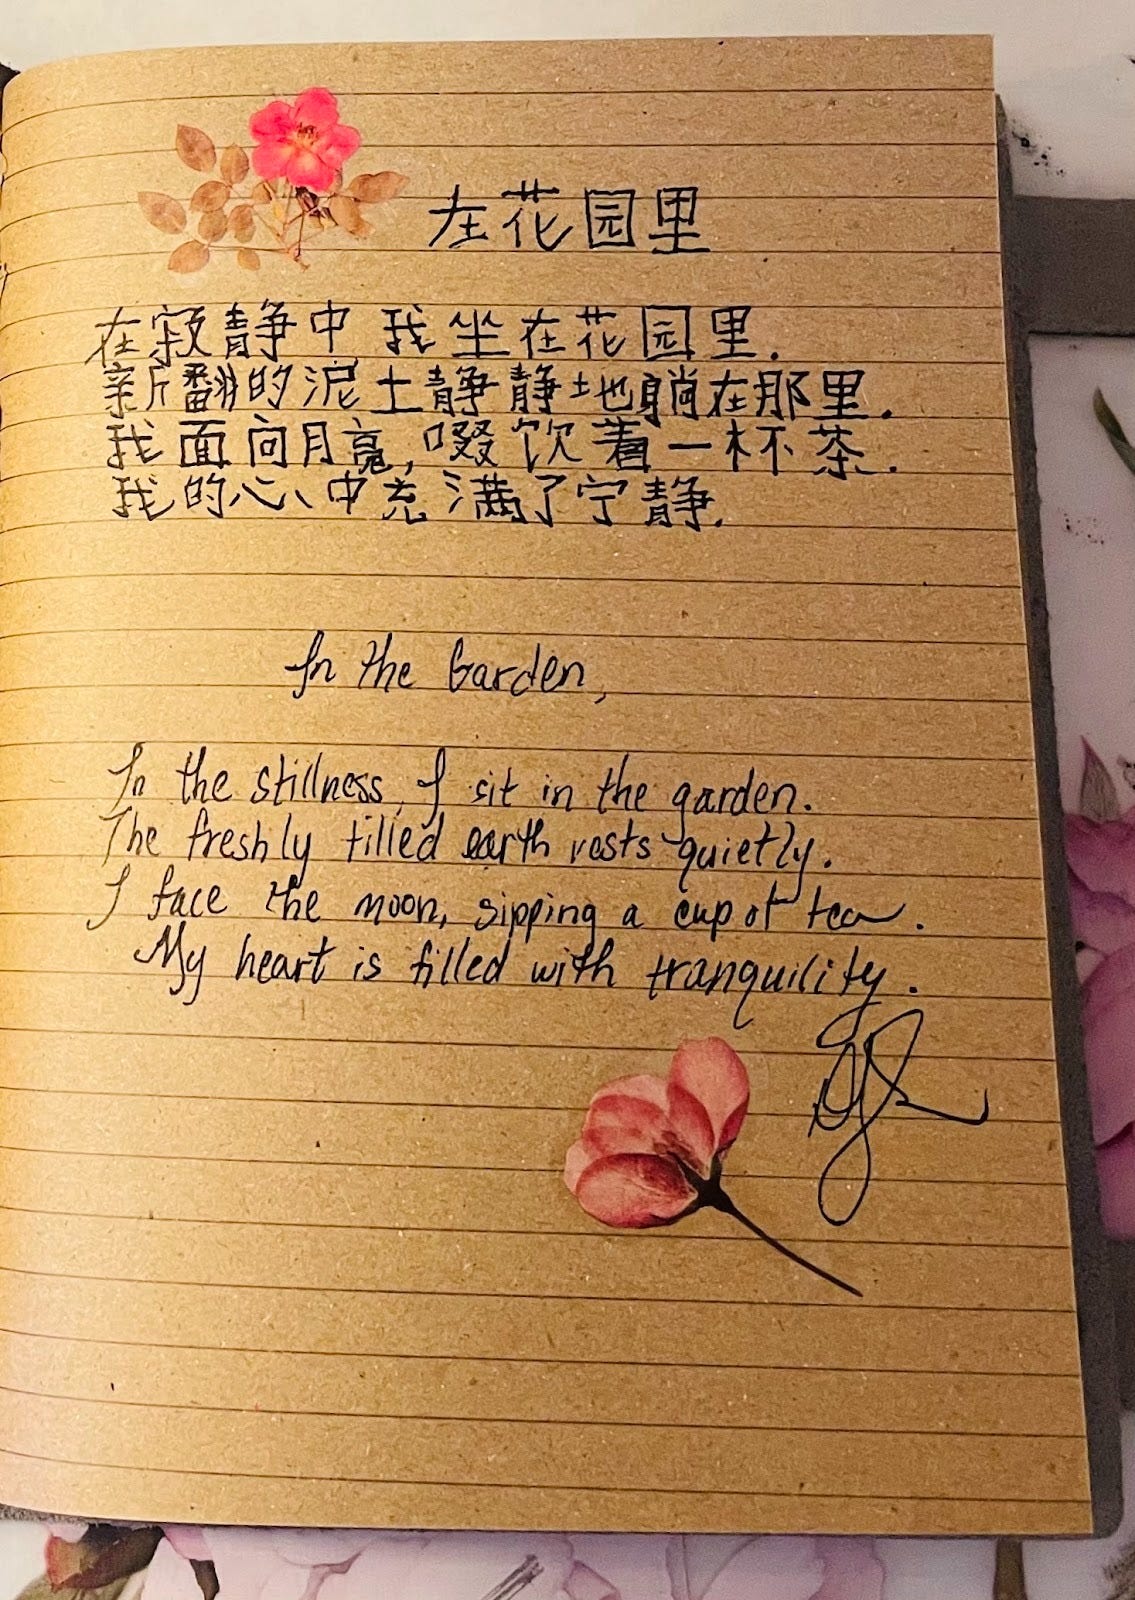 在花园里
在寂静中 我坐在花园里.
新翻的泥土静静地躺在那里.
我面向月亮, 啜饮着一杯茶.
我的心中充满了宁静.
In the Garden,
In the stillness, I sit in the garden.
The freshly tilled earth rests quietly.
I face the moon, sipping a cup of tea.
My heart is filled with tranquility.